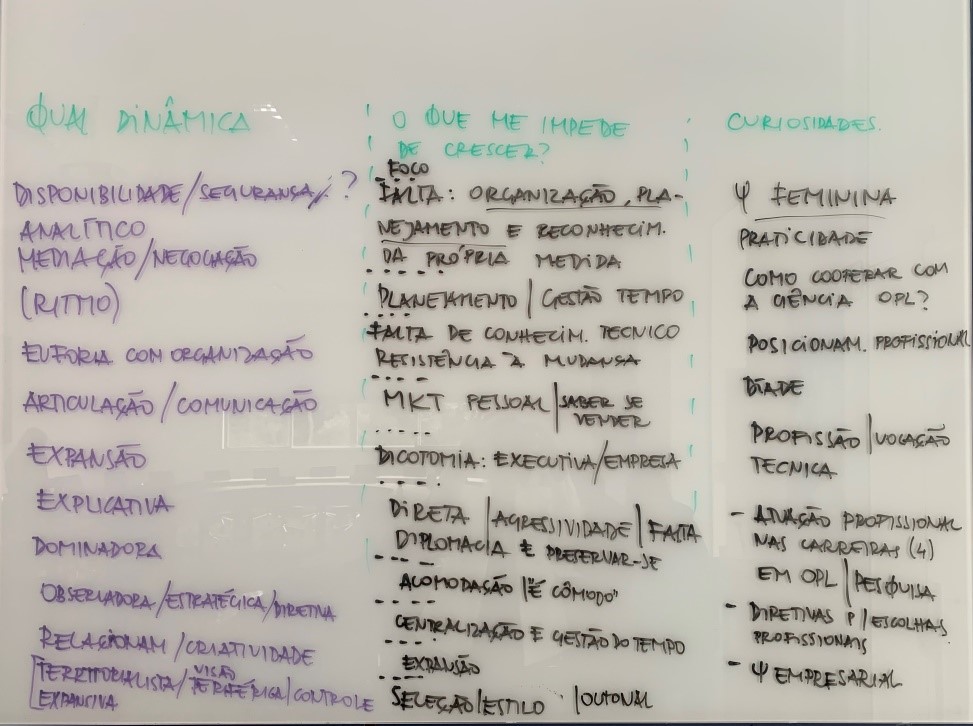 QUAL DINÂMICA
DISPONIBILIDADE/SEGURANSA/. ?
ANALÍTICO
MEDIAÇÃO/NEGOCAÇÃO
(RITMO)
EUFORIA COM ORGANIZAÇÃO
ARTICULAÇÃO/COMUNICAÇÃO
EXPANSÃO
EXPLICATIVA
DOMINADORA
OBSERVADORA/ESTRATÉGICA/DIRETIVA
RELACIONAM/CRIATIVIDADE
VISÃO
TERRITORIALISTA/PERIFÉRICA/CONTROLE
EXPANSIVA
O QUE ME IMPEDE
DE CRESCER?
FOCO
FALTA: ORGANIZAÇÃO, PLA-
NEJAMENTO E RECONHECIM.
DA PRÓPRIA MEDIDA
PLANEJAMENTO | GESTÃO TEMPO
FALTA DE CONHECIM. TECNICO
RESISTÊNCIA À MUDANSA
MKT PESSOAL | SABER SE
VENDER
DICOTOMIA: EXECUTIVA/EMPRESA
DIRETA | AGRESSIVIDADE | FALTA
DIPLOMACIA E PRESERVAR-SE
ACOMODAÇÃO | "É CÔMODO"
CENTRALIZAÇÃO E GESTÃO DO TEMPO
EXPANSÃO
SELEÇÃO/ESTILO | OUTONAL
CURIOSIDADES.
Ψ FEMININA
PRATICIDADE
COMO COOPERAR COM
A CIÊNCIA OPL?
POSICIONAM. PROFISSIONAL
DÍADE
PROFISSÃO | VOCAÇÃO
TECNICA
- ATUAÇÃO PROFISSIONAL
NAS CARREIRAS (4)
EM OPL | PESQUISA
- DIRETIVAS P/ESCOLHAS
PROFISSIONAIS
- Ψ EMPRESARIAL